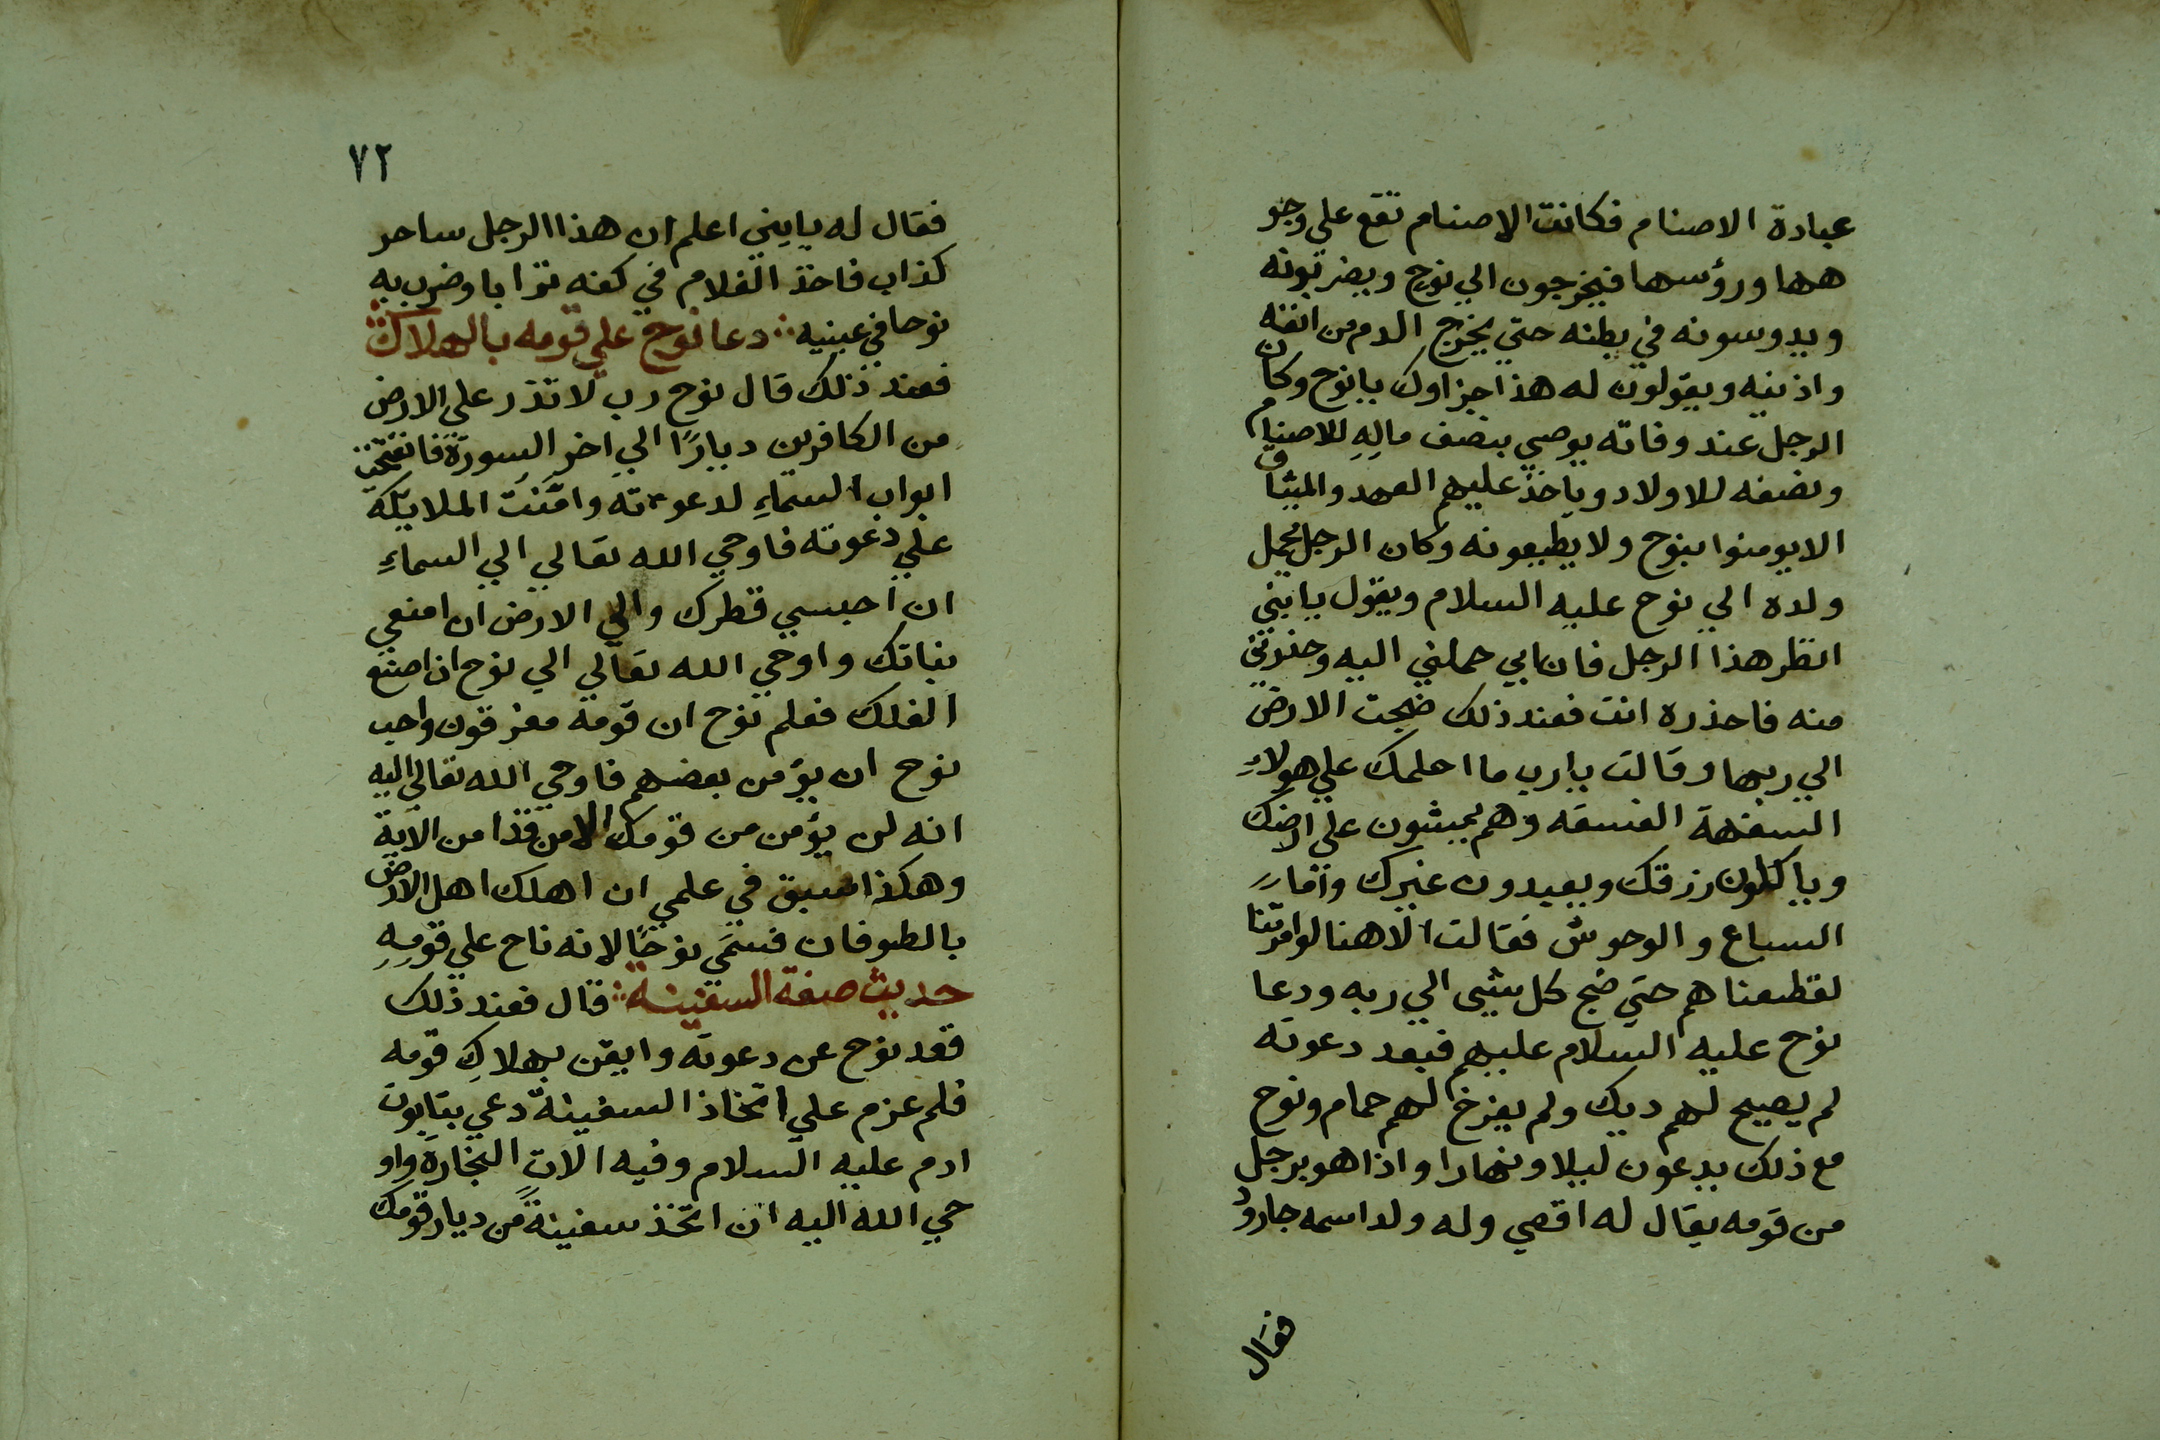 عبادة الاصنام فكانت الاصنام تقع علي وجو
هها ورؤسها فيخرجون الي نوح ويضربونه
ويدوسونه في بطنه حتي يخرج الدم من انفه
واذنيه ويقولون له هذا جزاوك يانوح وكان
الرجل عند وفاته يوصي بنصف مالِهِ للاصنام
ونصفه للاولاد وياخذ عليهم العهد والميثاق
الايومنوا بنوح ولا يطيعونه وكان الرجل يحمل
ولده الي نوح عليه السلام ويقول يابني
انظر هذا الرجل فان ابي حملني اليه وحذرني
منه فاحذره انت فعند ذلك ضجت الارض
الي ربها وقالت يارب ما احلمك علي هولاءِ
السفهة الفسقه وهم يمشون علي ارضك
وياكلون رزقك ويعبدون غيرك
السباع والوحوش فقالت الاهنا لوامرتنا
لقطعناهم حتي ضج كل شيى الي ربه ودعا
نوح عليه السلام عليهم فبعد دعوته
لم يصيح لهم ديك ولم يفرخ لهم حمام ونوح
مع ذلك يدعون ليلا ونهارا واذا هو برجل
من قومه يقال له اقصي وله ولد اسمه جارود
فقال
٧٢
فقال له يابني اعلم ان هذا الرجل ساحر
كذاب فاخذ الغلام في كفه ترابا وضرب به
نوحا في عينيه دعا نوح علي قومه بالهلاك
فعند ذلك قال نوح رب لا تذر علي الارض
من الكافرين ديارًا الي اخر السورة فانفتحت
ابواب السماءِ لدعوته وامّنت الملايكة
علي دعوته فاوحي الله تعالي الي السماءِ
ان احبسي قطرك والي الارض ان امنعي
نباتك واوحي الله تعالي الي نوح ان اصنع
الفلك فعلم نوح ان قومه مغرقون واحب
نوح ان يؤمن بعضهم فاوحي الله تعالي اليه
انه لن يؤمن من قومك الا من قد امن الاية
وهكذا سبق في علمي ان اهلك اهل الارض
بالطوفان فسمّي نوحًا لانه ناح علي قومِهِ
حديث صفة السفينة قال فعند ذلك
قعد نوح عن دعوته وايقن بهلاكِ قومه
فلم عزم علي اتخاذ السفينة دعي بتابوت
ادم عليه السلام وفيه الات النجارة واو
حي الله اليه ان اتخذ سفينةً من ديار قومك